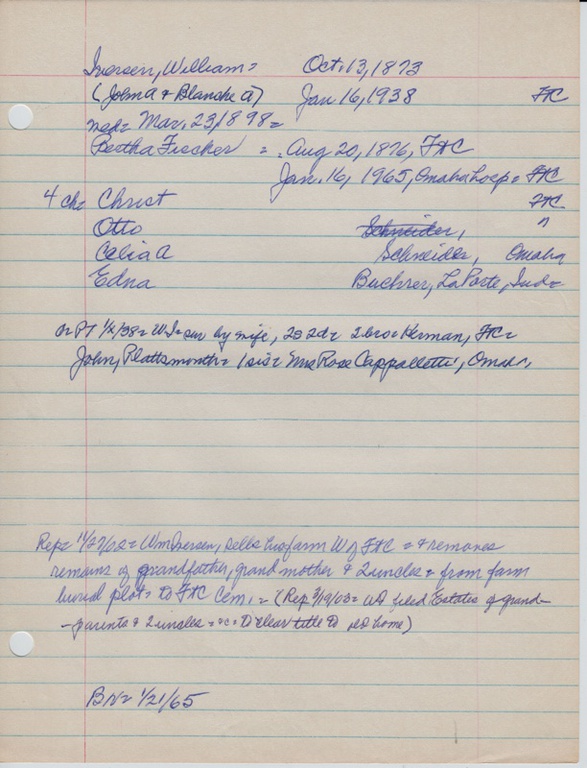 Iversen, William = Oct. 13, 1873
(John A & Blanche A) Jan 16, 1938 FtC
med = Mar. 23, 1898 =
Bertha Fischer = Aug 20, 1876, FtC
Jan. 16, 1965, Omaha hosp = FtC
4 ch = Christ FtC
Otto Schneider, "
Celia A Schneider, Omaha
Edna Buehrer, LaPorte, Ind =
by wife, 2s 2d = 2 bro = Herman, FtC =
John, Plattsmouth = 1 sis = Mrs Rose Cappalletti, Omah,
Rep = Wm Iversen, sells his farm W of FtC = & removes
remains of grandfather, grand mother & 2 uncles = from farm
burial plot = to FtC Cem. = (Rep 3/19/03 = filed Estates of grand-
-parents & 2 uncles = to clear title to home)
BN = 1/21/65